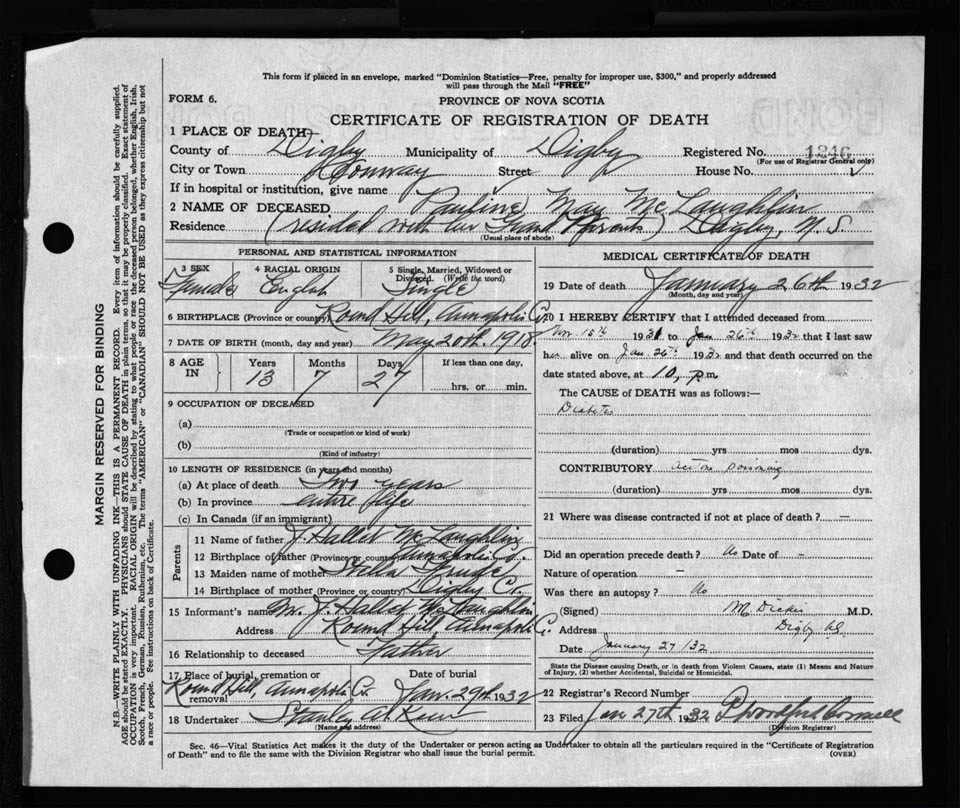 This form if placed in an envelope, marked "Dominion Statistics—Free, penalty for improper use, $300," and properly addressed
will pass through the Mail "FREE"
FORM 6.
PROVINCE OF NOVA SCOTIA
CERTIFICATE OF REGISTRATION OF DEATH
1 PLACE OF DEATH
County of Digby Municipality of Digby Registered No. 1246
(For use of Registrar General only)
City or Town Conway Street House No.
If in hospital or institution, give name
2 NAME OF DECEASED Pauline May McLaughlin
Residence (resided with her Grand Parents) Digby, N. S.
(Usual place of abode)
PERSONAL AND STATISTICAL INFORMATION
3 SEX Female
4 RACIAL ORIGIN English
5 Single, Married, Widowed or Divorced. (Write the word) Single
6 BIRTHPLACE (Province or country) Round Hill, Annapolis Co.
7 DATE OF BIRTH (month, day and year) May 20th 1918
8 AGE IN Years 13 Months 7 Days 27 If less than one day, hrs. or min.
9 OCCUPATION OF DECEASED
(a)
(Trade or occupation or kind of work)
(b)
(Kind of industry)
10 LENGTH OF RESIDENCE (in years and months)
(a) At place of death Two years
(b) In province entire life
(c) In Canada (if an immigrant)
Parents
11 Name of father J. Hallet McLaughlin
12 Birthplace of father (Province or country) Annapolis Co.
13 Maiden name of mother Stella
14 Birthplace of mother (Province or country) Digby Co.
15 Informant's name Mr. J. Hallet McLaughlin
Address Round Hill, Annapolis Co.
16 Relationship to deceased Father
17 Place of burial, cremation or removal Round Hill, Annapolis Co. Date of burial Jan. 29th 1932
18 Undertaker Stanley
(Name and address)
MEDICAL CERTIFICATE OF DEATH
19 Date of death January 26th 1932
(Month, day and year)
20 I HEREBY CERTIFY that I attended deceased from
Nov 15th 1931 to Jan 26th 1932 that I last saw
her alive on Jan 26th 1932 and that death occurred on the
date stated above, at 10, p.m.
The CAUSE of DEATH was as follows:—
Diabetes
(duration) yrs mos dys.
CONTRIBUTORY poisoning
(duration) yrs mos dys.
21 Where was disease contracted if not at place of death? —
Did an operation precede death? No Date of —
Nature of operation —
Was there an autopsy? No
(Signed) M.D.
Address Digby
Date January 27/32
State the Disease causing Death, or in death from Violent Causes, state (1) Means and Nature
of Injury, (2) whether Accidental, Suicidal or Homicidal.
22 Registrar's Record Number
23 Filed Jan 27th 1932
(Division Registrar)
Sec. 46—Vital Statistics Act makes it the duty of the Undertaker or person acting as Undertaker to obtain all the particulars required in the "Certificate of Registration
of Death" and to file the same with the Division Registrar who shall issue the burial permit.
(OVER)
MARGIN RESERVED FOR BINDING
N.B.—WRITE PLAINLY WITH UNFADING INK—THIS IS A PERMANENT RECORD. Every item of information should be carefully supplied.
AGE should be stated EXACTLY. PHYSICIANS should STATE CAUSE OF DEATH in plain terms, so that it may be properly classified. Exact statement of
OCCUPATION is very important. RACIAL ORIGIN will be described by stating to what people or race the deceased person belonged, whether English, Irish,
Scotch, French, German, Russian, Ruthenian, etc. The terms "AMERICAN" or "CANADIAN" SHOULD NOT BE USED as they express citizenship but not
a race or people. See instructions on back of Certificate.